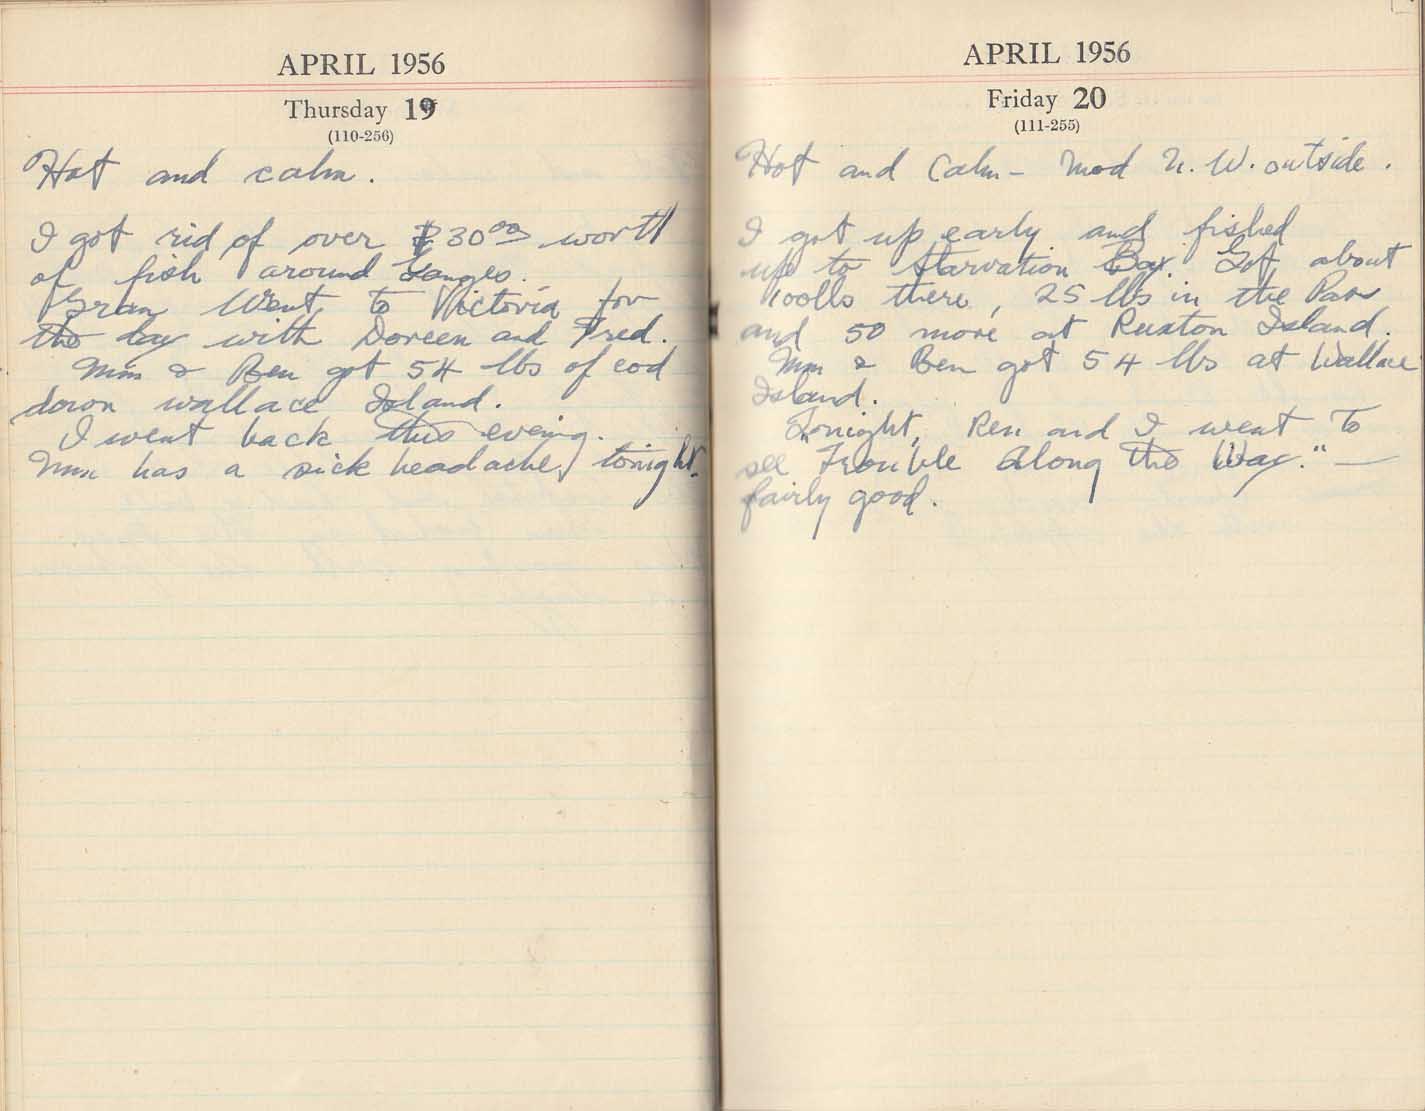 APRIL 1956
Thursday 19
(110-256)
Hot and calm.
I got rid of over $30.00 worth
of fish around Ganges.
Gran Went to Victoria for
the day with Doreen and Fred.
Mum & Ben got 54 lbs of cod
down wallace Island.
I went back this evening.
Mum has a sick headache tonight.
APRIL 1956
Friday 20
(111-255)
Hot and Calm - Mod N. W. outside.
I got up early and fished
up to Starvation Bay. Got about
100lbs there, 25 lbs in the Pass
and 50 more at Ruxton Island.
Mum & Ben got 54 lbs at Wallace
Island.
Tonight, Ben and I went to
see "Trouble Along the Way." —
fairly good.